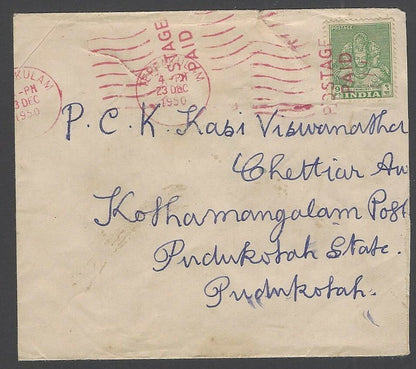 KULAM
-PM
3 DEC
1950
4 - PM
23 DEC
1950
POSTAGE
PAID
POSTAGE
PAID
POSTAGE
INDIA
P. C. K. Kasi Viswanatha
Chettiar Av
Kothamangalam Post
Pudukotah State.
Pudukotah.